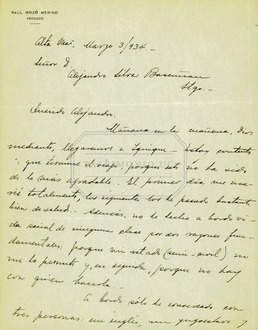 RAUL MOZÓ MERINO
ABOGADO
Alta Mar, Marzo 3/934 —
Señor D.
Alejandro Silva Bascuñan
Stgo.
Querido Alejandro:
Mañana en la mañana, Dios
mediante, llegaremos a Iquique. Estoy contento
que termine el viaje porque este no ha sido
de lo más agradable. El primer día me
totalmente, los siguientes los he pasado bastante
bien de salud. Además, no he hecho a bordo vida
social de ninguna clase por dos razones fun-
damentales: porque mi estado no
me lo permite y, en segunda, porque no hay
con quien hacerla.
A bordo sólo he conversado con
tres personas: un inglés, un yugoeslavo y